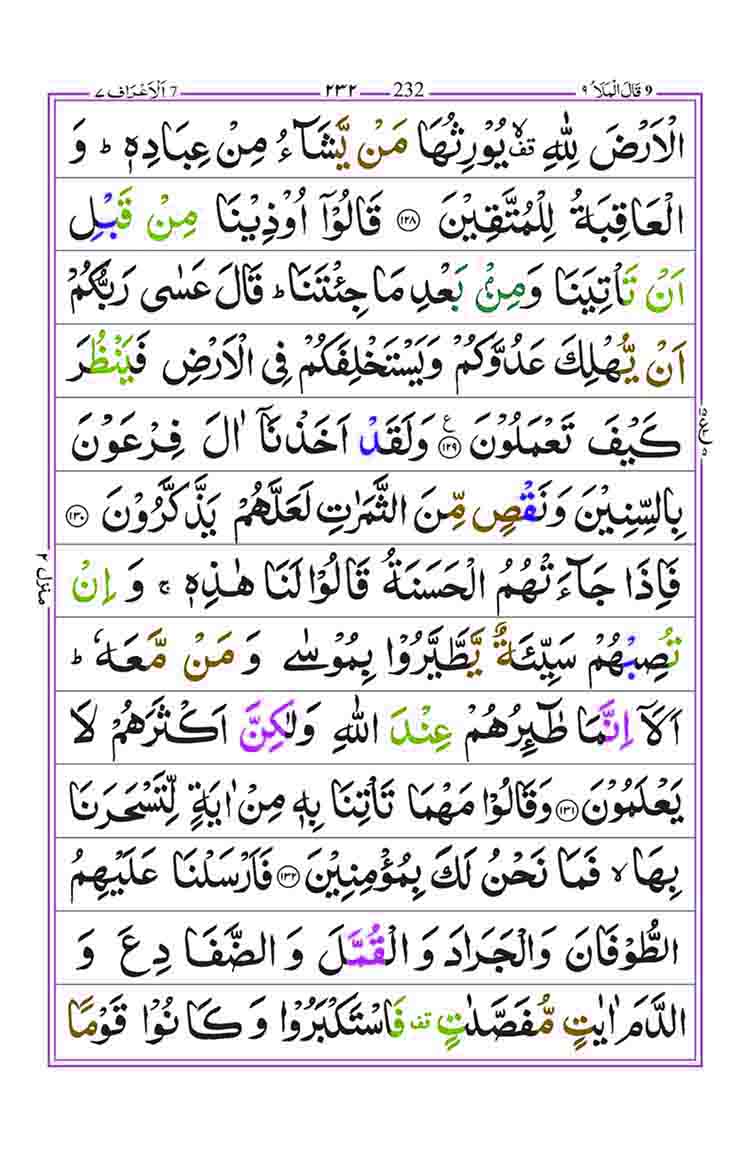 9 قَالَ الْمَلَاُ ٩ 232 ٢٣٢ 7 اَلْاَعْرَاف ٧
الْاَرْضَ لِلّٰهِ ۙ قف يُوْرِثُهَا مَنْ يَّشَآءُ مِنْ عِبَادِهٖ ؕ وَ
الْعَاقِبَةُ لِلْمُتَّقِيْنَ ﴿۱۲۸﴾ قَالُوْۤا اُوْذِيْنَا مِنْ قَبْلِ
اَنْ تَاْتِيَنَا وَمِنْۢ بَعْدِ مَا جِئْتَنَا ؕ قَالَ عَسٰى رَبُّكُمْ
اَنْ يُّهْلِكَ عَدُوَّكُمْ وَيَسْتَخْلِفَكُمْ فِى الْاَرْضِ فَيَنْظُرَ
كَيْفَ تَعْمَلُوْنَ ﴿۱۲۹﴾ ع وَلَقَدْ اَخَذْنَاۤ اٰلَ فِرْعَوْنَ
بِالسِّنِيْنَ وَنَقْصٍ مِّنَ الثَّمَرٰتِ لَعَلَّهُمْ يَذَّكَّرُوْنَ ﴿۱۳۰﴾
فَاِذَا جَآءَتْهُمُ الْحَسَنَةُ قَالُوْا لَنَا هٰذِهٖ ۚ وَ اِنْ
تُصِبْهُمْ سَيِّئَةٌ يَّطَّيَّرُوْا بِمُوْسٰى وَ مَنْ مَّعَهٗ ؕ
اَلَاۤ اِنَّمَا طٰٓئِرُهُمْ عِنْدَ اللّٰهِ وَلٰكِنَّ اَكْثَرَهُمْ لَا
يَعْلَمُوْنَ ﴿۱۳۱﴾ وَقَالُوْا مَهْمَا تَاْتِنَا بِهٖ مِنْ اٰيَةٍ لِّتَسْحَرَنَا
بِهَا ۙ فَمَا نَحْنُ لَكَ بِمُؤْمِنِيْنَ ﴿۱۳۲﴾ فَاَرْسَلْنَا عَلَيْهِمُ
الطُّوْفَانَ وَالْجَرَادَ وَ الْقُمَّلَ وَ الضَّفَادِعَ وَ
الدَّمَ اٰيٰتٍ مُّفَصَّلٰتٍ قف فَاسْتَكْبَرُوْا وَ كَانُوْا قَوْمًا
منزل ٢